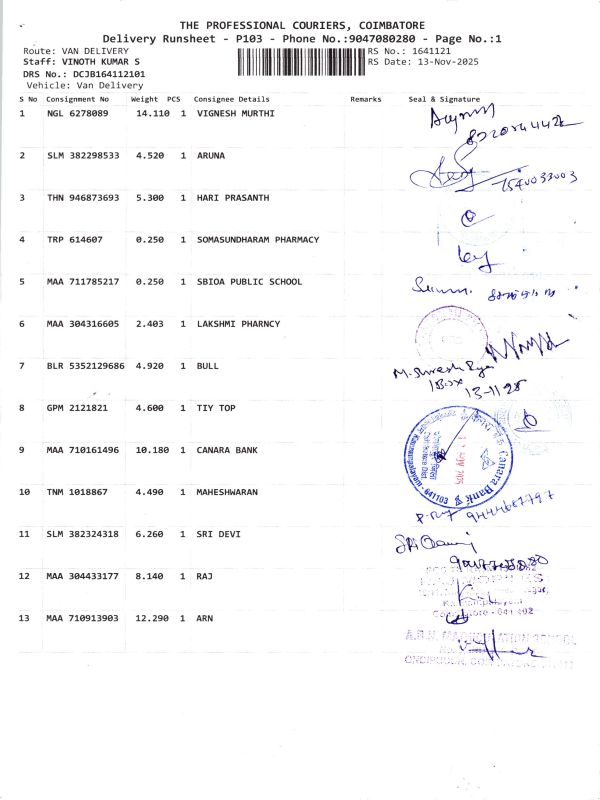 THE PROFESSIONAL COURIERS, COIMBATORE
Delivery Runsheet - P103 - Phone No.:9047080280 - Page No.:1
Route: VAN DELIVERY RS No.: 1641121
Staff: VINOTH KUMAR S RS Date: 13-Nov-2025
DRS No.: DCJB164112101
Vehicle: Van Delivery
S No Consignment No Weight PCS Consignee Details Remarks Seal & Signature
1 NGL 6278089 14.110 1 VIGNESH MURTHI
2 SLM 382298533 4.520 1 ARUNA
7540033003
3 THN 946873693 5.300 1 HARI PRASANTH
4 TRP 614607 0.250 1 SOMASUNDHARAM PHARMACY
5 MAA 711785217 0.250 1 SBIOA PUBLIC SCHOOL
6 MAA 304316605 2.403 1 LAKSHMI PHARNCY
7 BLR 5352129686 4.920 1 BULL
1 Box
13-11-25
8 GPM 2121821 4.600 1 TIY TOP
9 MAA 710161496 10.180 1 CANARA BANK
Canara Bank
641103
10 TNM 1018867 4.490 1 MAHESHWARAN
11 SLM 382324318 6.260 1 SRI DEVI
12 MAA 304433177 8.140 1 RAJ
13 MAA 710913903 12.290 1 ARN